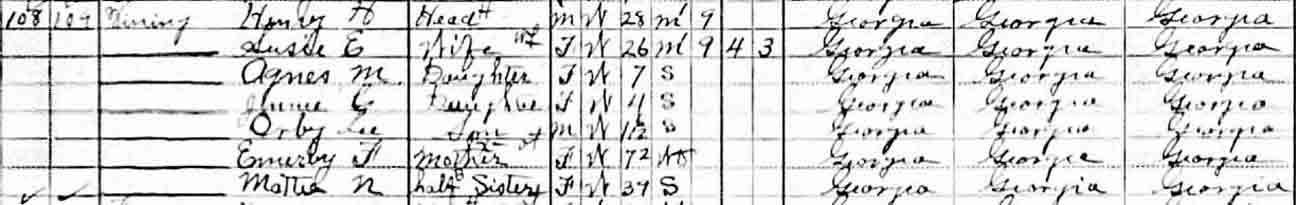 108 109 Vining Henry H Head M W 28 M 9 Georgia Georgia Georgia
Susie E Wife F W 26 M 9 4 3 Georgia Georgia Georgia
Agnes M Daughter F W 7 S Georgia Georgia Georgia
E Daughter F W 4 S Georgia Georgia Georgia
Orby Lee Son M W S Georgia Georgia Georgia
Emerby F Mother F W 72 Wd Georgia Georgia Georgia
Mattie N half Sister F W 34 S Georgia Georgia Georgia